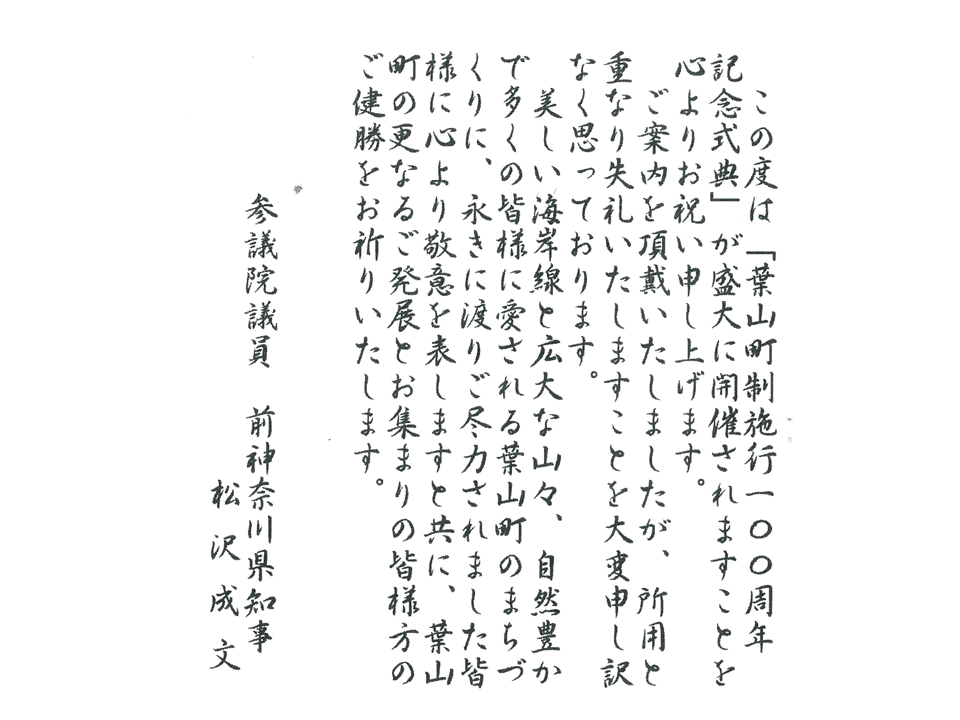 この度は「葉山町制施行一〇〇周年
記念式典」が盛大に開催されますことを
心よりお祝い申し上げます。
ご案内を頂戴いたしましたが、所用と
重なり失礼いたしますことを大変申し訳
なく思っております。
美しい海岸線と広大な山々、自然豊か
で多くの皆様に愛される葉山町のまちづ
くりに、永きに渡りご尽力されました皆
様に心より敬意を表しますと共に、葉山
町の更なるご発展とお集まりの皆様方の
ご健勝をお祈りいたします。
参議院議員　前神奈川県知事
松沢成文